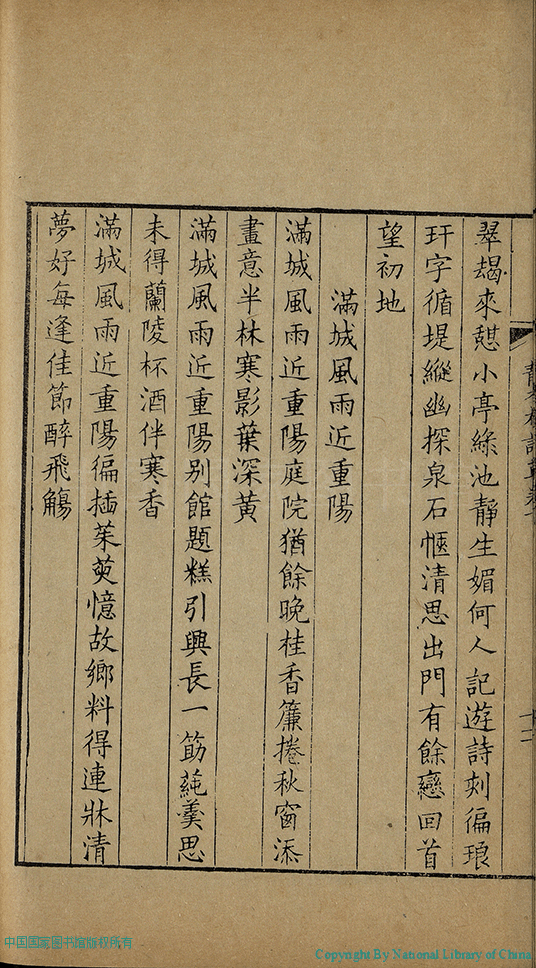 翠朅來憩小亭綠池靜生媚何人記遊詩刻徧琅
玕字循堤縱幽探泉石愜清思出門有餘戀回首
望初地
滿城風雨近重陽
滿城風雨近重陽庭院猶餘晚桂香簾捲秋窗添
畫意半林寒影葉深黃
滿城風雨近重陽別館題糕引興長一筯蒓羹思
未得蘭陵杯酒伴寒香
滿城風雨近重陽徧插茱萸憶故鄉料得連牀清
夢好每逢佳節醉飛觴
十二
中国国家图书馆版权所有
Copyright By National Library of China